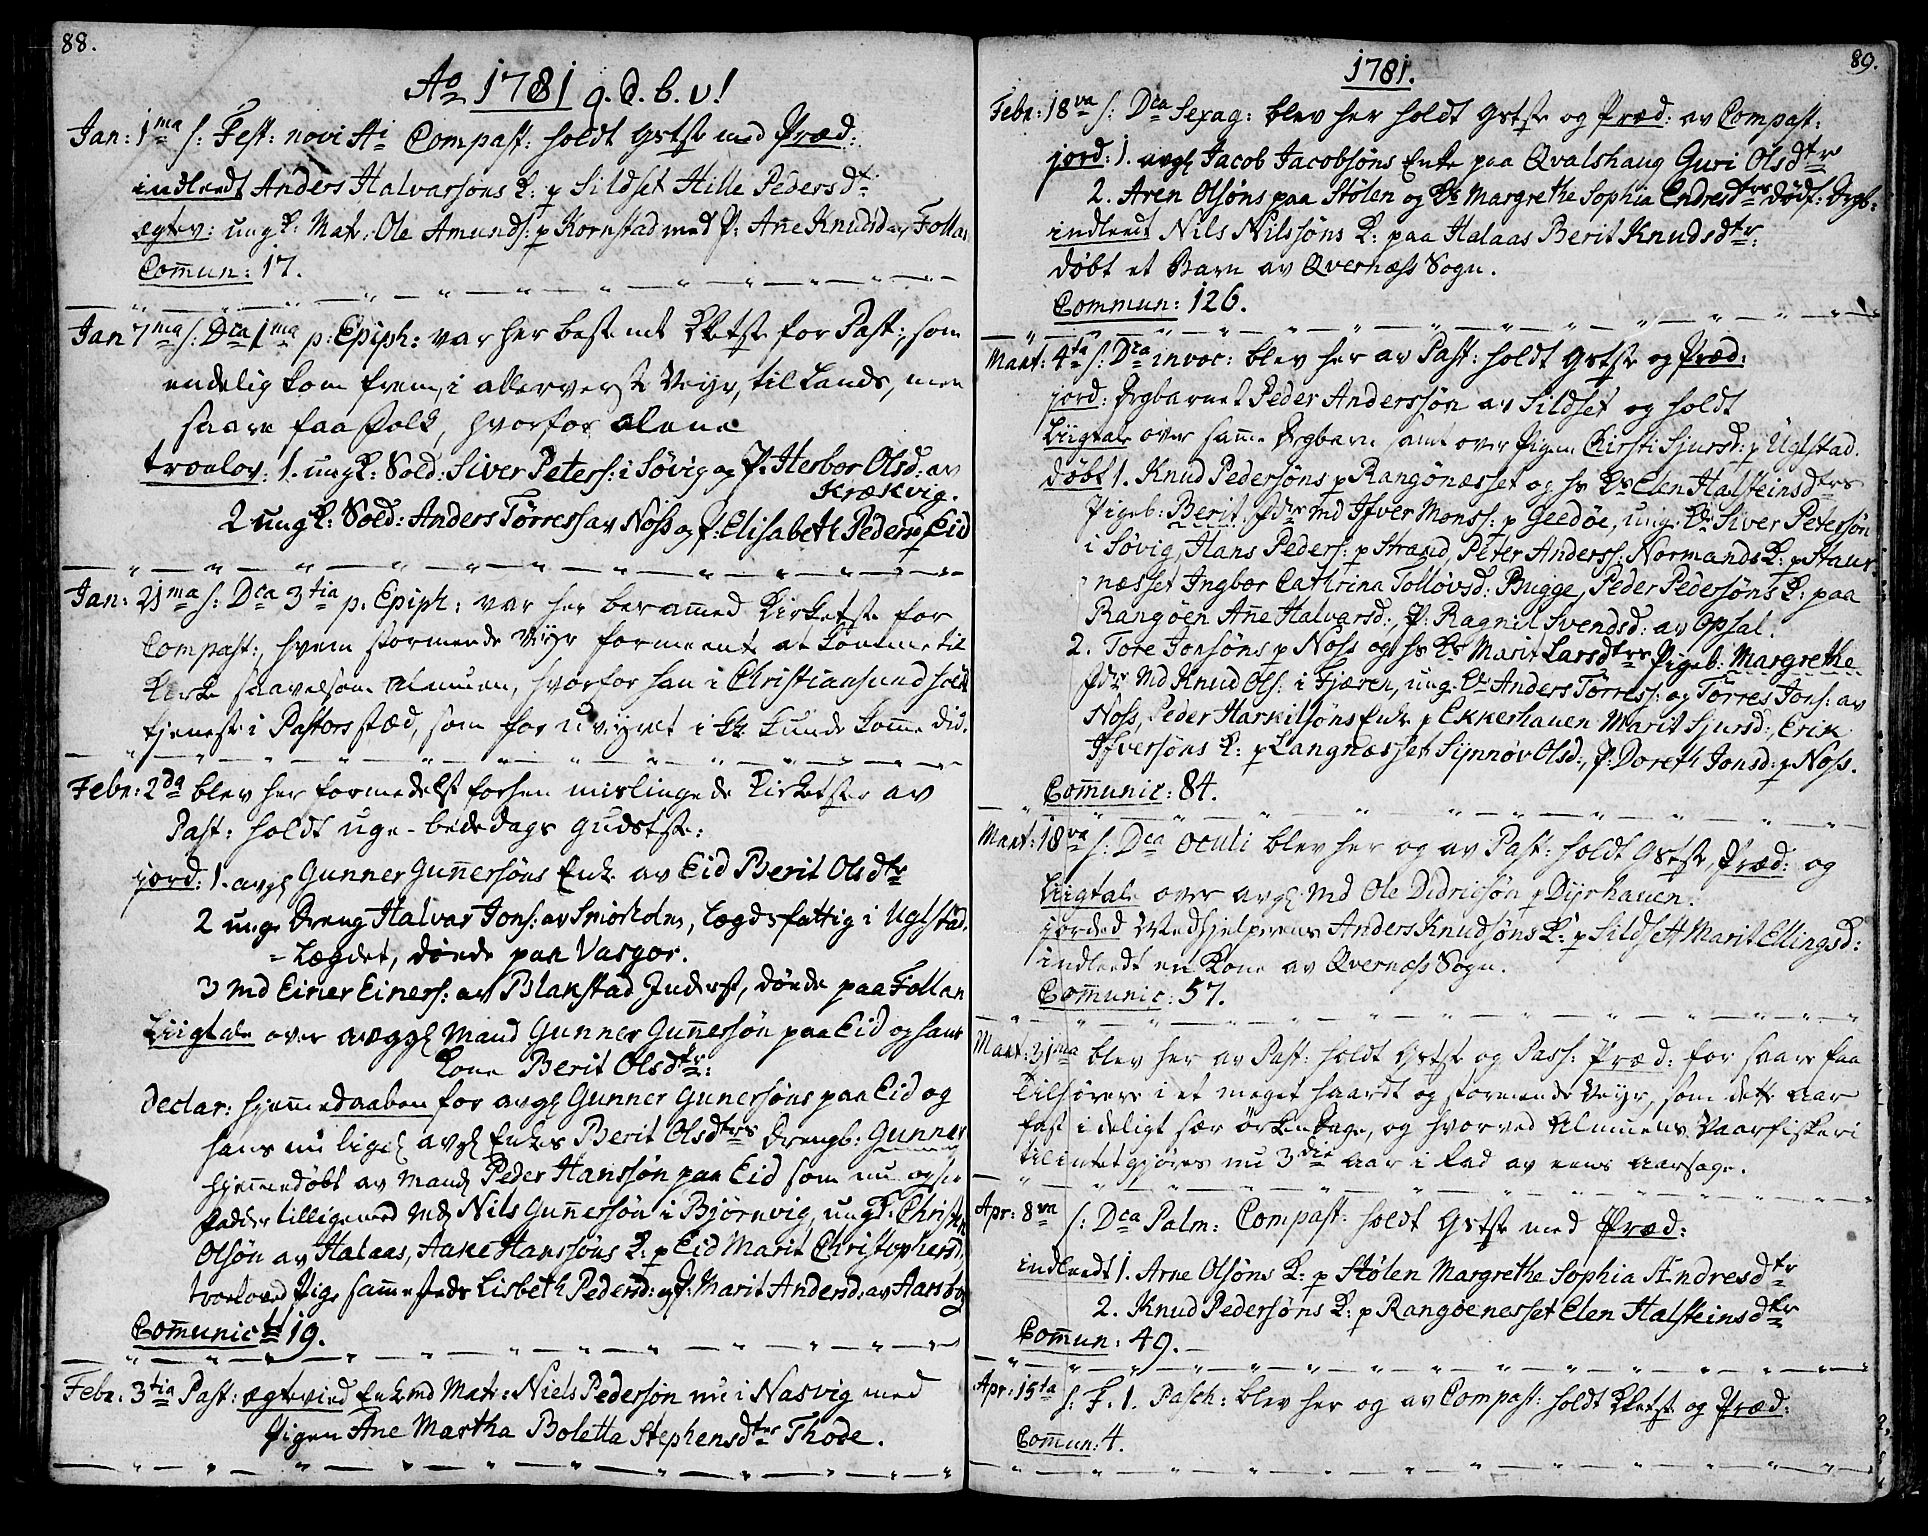 88.
Ao 1781 q. d. b. v!
Jan: 1ma s: Fest: novi Ai Compast: holdt Gstste med Præd:
indleedt Anders Halvarsøns K: p Sildset Hille Pedersdtr
ægtev: ungK: Matr. Ole Amunds: p Kornstad med P: Añe Knudsd av Follan
Com̄un: 17.
Jan 7ma s: Dca 1ma p: Epiph: var her bestemt Kketste for Past:, som
endelig kom frem, i allerverste Veyr, til Lands, men
saare faa Folk, hvorfor alene
troelov: 1. ungK: Sold: Siver Peters: i Søvig og P: Herbor Olsd: av
Krækvig.
2 ungK: Sold: Anders Tørress av Noss og P: Elisabeth Peders p Eid
Jan: 21ma s: Dca 3tia p: Epiph: var her berammed Kirketste for
Compast:, hvem stormende Veyr formeente at komme til
Kirke saavelsom Almuen, hvorfor han i Christiansund holdt
tjeneste i Pastors stæd, som for uveyret ikke kunde kom̄e did.
Febr: 2da blev her formedelst forhen mislingede Kirketster av
Past: holdt uge-bededags gudstste:
jord: 1. avgl Gunner Gun̄ersøns Enke av Eid Berit Olsdtr
2 unge Dreng Halvar Jons: av Smiørholm, Lægdsfattig i Uglstad,
- Lægdet, døede paa Vasgor.
3 Md Einer Einers: av Blakstad Inderst, døede paa Follan
Liigtale over avggl Mand Gunner Gun̄ersøn paa Eid og hans
Kone Berit Olsdtr:
declar: hjem̄edaaben for avgl Gunner Gun̄ersøns paa Eid og
hans nu ligel avgl Enkes Berit Olsdtrs Drengb: Gunner
hjem̄edøbt av Mand Peder Hanssøn paa Eid som nu og
Fadder tilligemed Md Nils Gun̄ersøn i Bjørnvig, ungK: Christ
Olsøn av Halaas, Aake Hanssøns K: p Eid Marit Christophersd:,
troeloved Pige sam̄esteds Lisbeth Pedersd: og P: Marit Andersd: av Aarsbog
Com̄unicts 19.
Febr: 3tia Past: ægtevied Enkemd Matr: Niels Pedersøn nu i Nasvig med
Pigen Ane Martha Boletta Stephensdter Thode.
1781.
89.
Febr: 18va s: Dca Sexag: blev her holdt Gstste og Præd: av Compast:
jord: 1. avgl Jacob Jacobsøns Enke paa Qvalshaug Guri Olsdtr
2. Aren Olsøns paa Stølen og Ks Margrethe Sophia Endresdtrs dødf: Drgb:
indleedt Nils Nilssøns K: paa Halaas Berit Knudsdtr:
døbt et Barn av Qvernæss Sogn.
Commun: 126.
Mart: 4ta s: Dca invoc: blev her av Past: holdt Gstste og Præd:
jord: Drgbarnet Peder Anderssøn av Sildset og holdt
Liigtale over sam̄e Drgbarn samt over Pigen Kirsti Sjursd: p Uglstad.
døbt 1. Knud Pedersøns p Rangønæsset og hs Ks Elen Halsteinsdtrs
Pigeb: Berit. Fdre Md Ifver Monss: p Geedøe, ung Ks Siver Petersøn
i Søvig, Hans Peders: p Strand, Peter Anderss: Normands K: p Staur-
næsset Ingbor Cathrina Tolløvsd: Bugge, Peder Pedersøns K: paa
Rangøen Añe Halvarsd:, P: Ragnil Svendsd: av Opsal.
2. Tore Jonsøns p Noss og hs Ks Marit Larsdtrs Pigeb: Margrethe
Fdre Md Knud Ols: i Fjæren, ung: Ks Anders Tørress: og Tørres Jons: av
Noss, Peder Harkilsøns Enke p Ekkershauen Marit Sjursd:, Erik
Ifversøns K: p Langnæsset Synnøv Olsd:, P: Doreth Jonsd: p Noss.
Com̄unic: 84.
Mart: 18va s: Dca oculi blev her og av Past: holdt Gstste, Præd: og
Liigtale over avgl Md Ole Didricsøn p Dyrhauen.
jorded Medhjelperens Anders Knudsøns K: p Sildsett Marit Ellingsd:
indleedt en Kone av Qvernæss Sogn.
Com̄unic: 57.
Mart: 21ma blev her av Past: holdt Gstste og Pass: Præd: for saare faa
Tilhørere i et meget haardt og stormende Veyr, som dette Aar
fast ideligt sær ørkendage, og hvorved Almuens Vaarfiskeri
tilintetgjøres nu 3die Aar i Rad av eens Aarsage.
Apr: 8va s: Dca Palm: Compast: holdt Gstste med Præd:
indleedt 1. Arne Olsøns K: p Stølen Margrethe Sophia Andresdtr
2. Knud Pedersøns K: p Rangøenesset Elen Halsteinsdtr
Com̄un: 49.
Apr: 15ta s: F. 1. Pasch: blev her og av Compast: holdt Kketste og Præd:
Com̄un: 4.